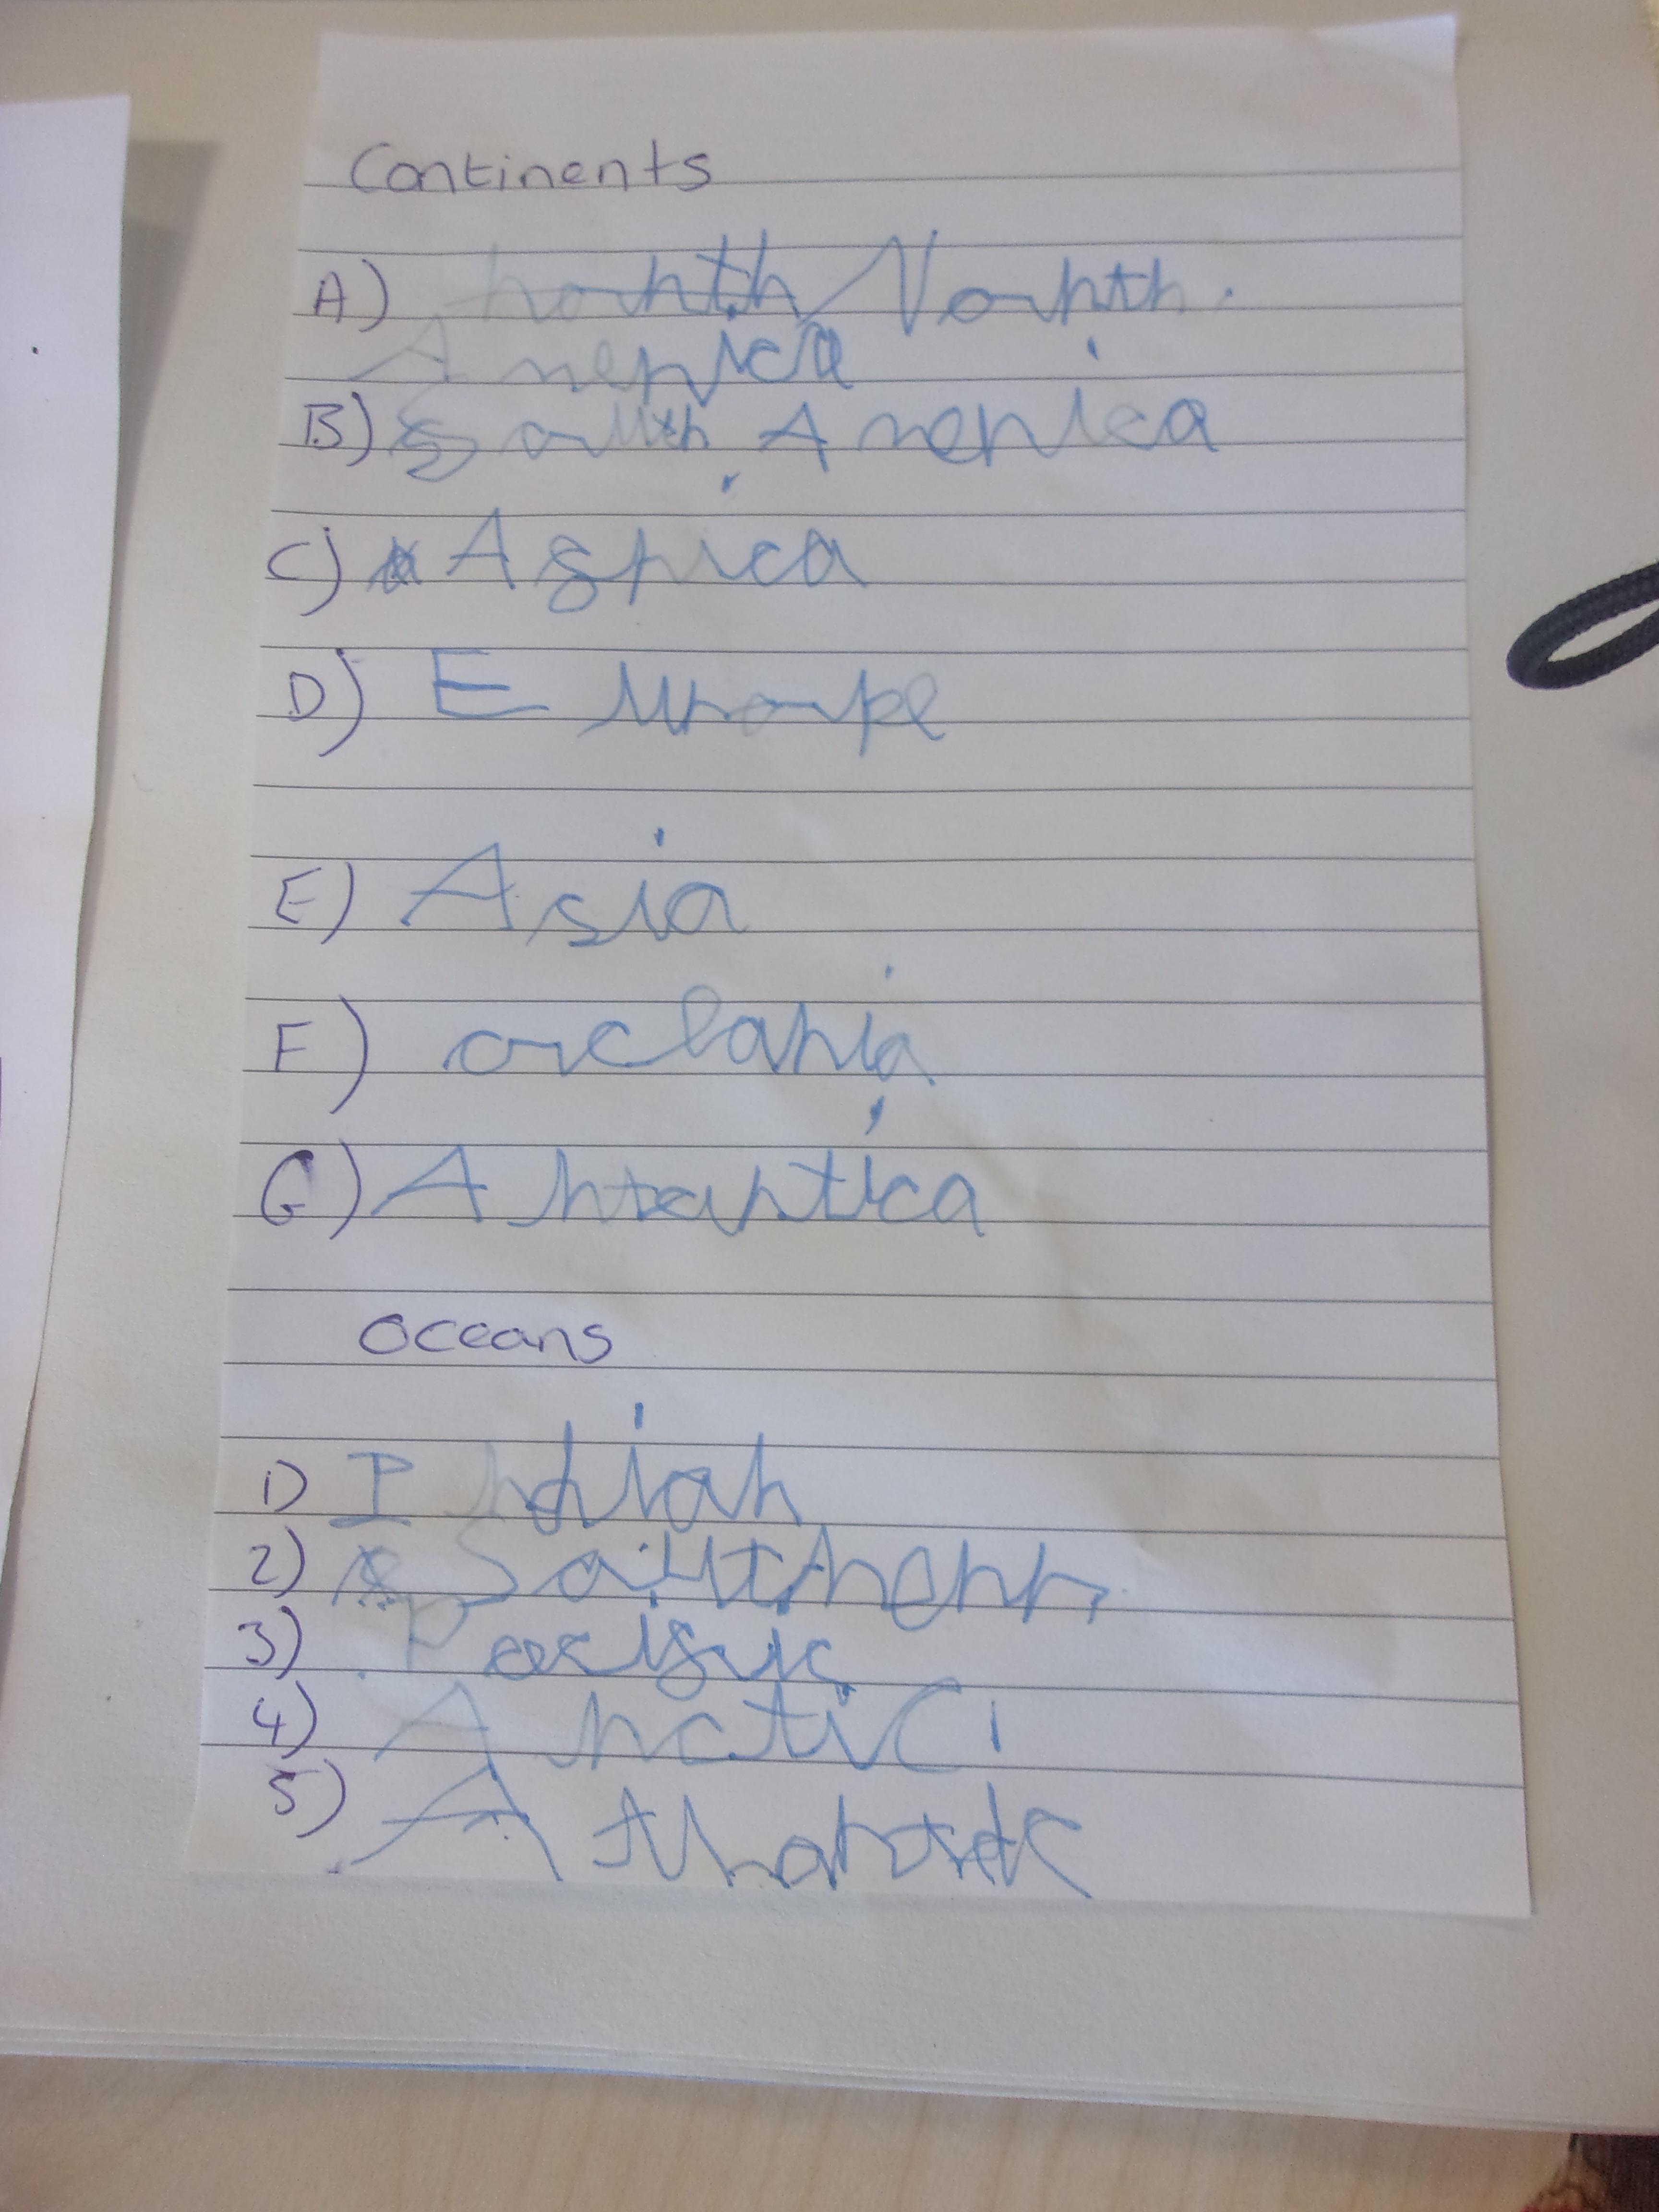 Continents
A) north North.
America
B) South America
C) Africa
D) Europe
E) Asia
F) oclania
G) Antartica
Oceans
1) Indian
2) Southern
3) Pacific
4) Arctic
5) Atlantic